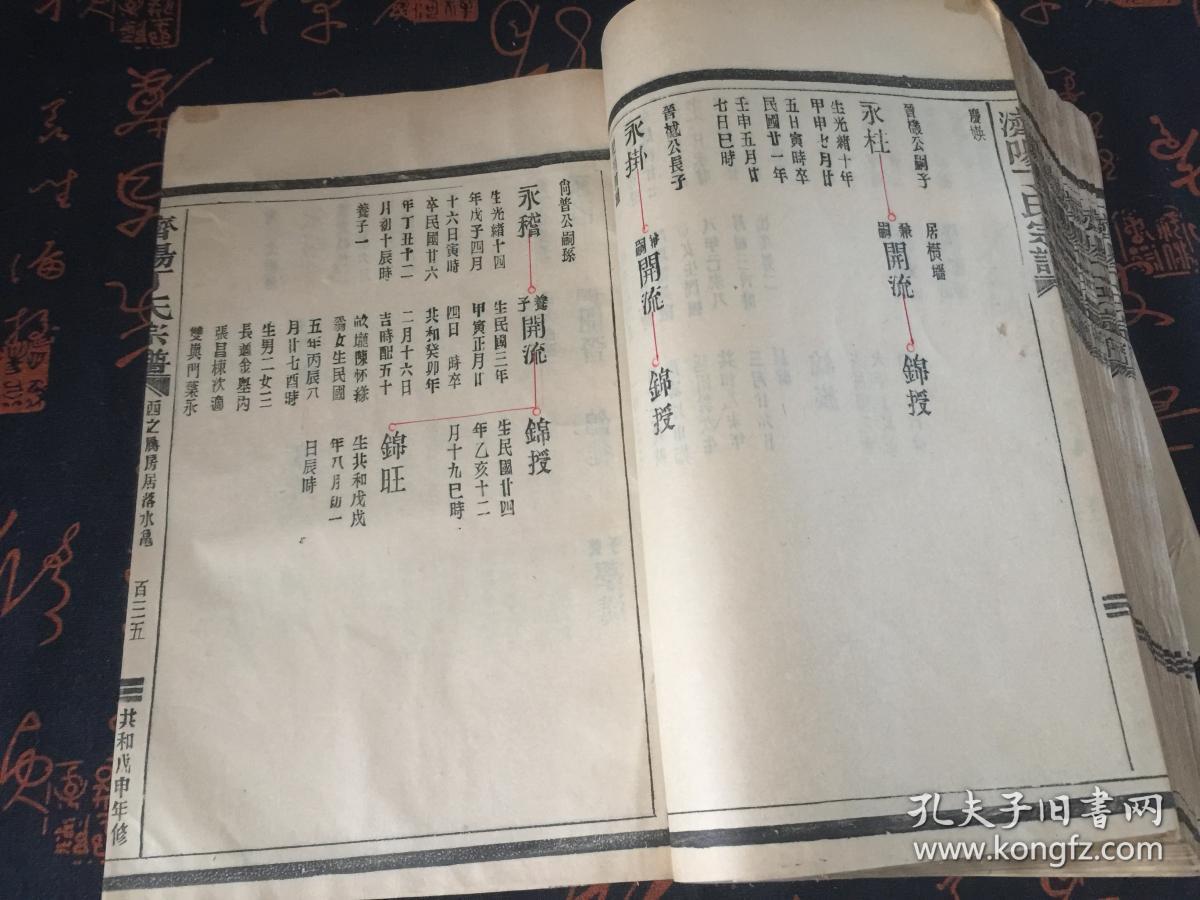 濟陽丁氏宗譜
慶媖
晉機公嗣子
永杜
生光緒十年
甲申七月廿
五日寅時卒
民國廿一年
壬申五月廿
七日巳時
居橫塘
兼嗣
開流
錦授
晉樾公長子
永掛
兼嗣
開流
錦授
尚普公嗣孫
永稽
生光緒十四
年戊子四月
十六日寅時
卒民國廿六
年丁丑十二
月初十辰時
養子一
養子
開流
生民國三年
甲寅正月廿
四日 時卒
共和癸卯年
二月十六日
吉時配五十
畝壠陳怀祿
翁女生民國
五年丙辰八
月廿七酉時
生男二女三
長適金塵內
張昌棟次適
雙巽門葉永
錦授
生民國廿四
年乙亥十二
月十九巳時
錦旺
生共和戊戌
年八月初一
日辰時
濟陽丁氏宗譜
西之鳳房居落水鳧
百三五
共和戊申年修
孔夫子旧书网
www.kongfz.com